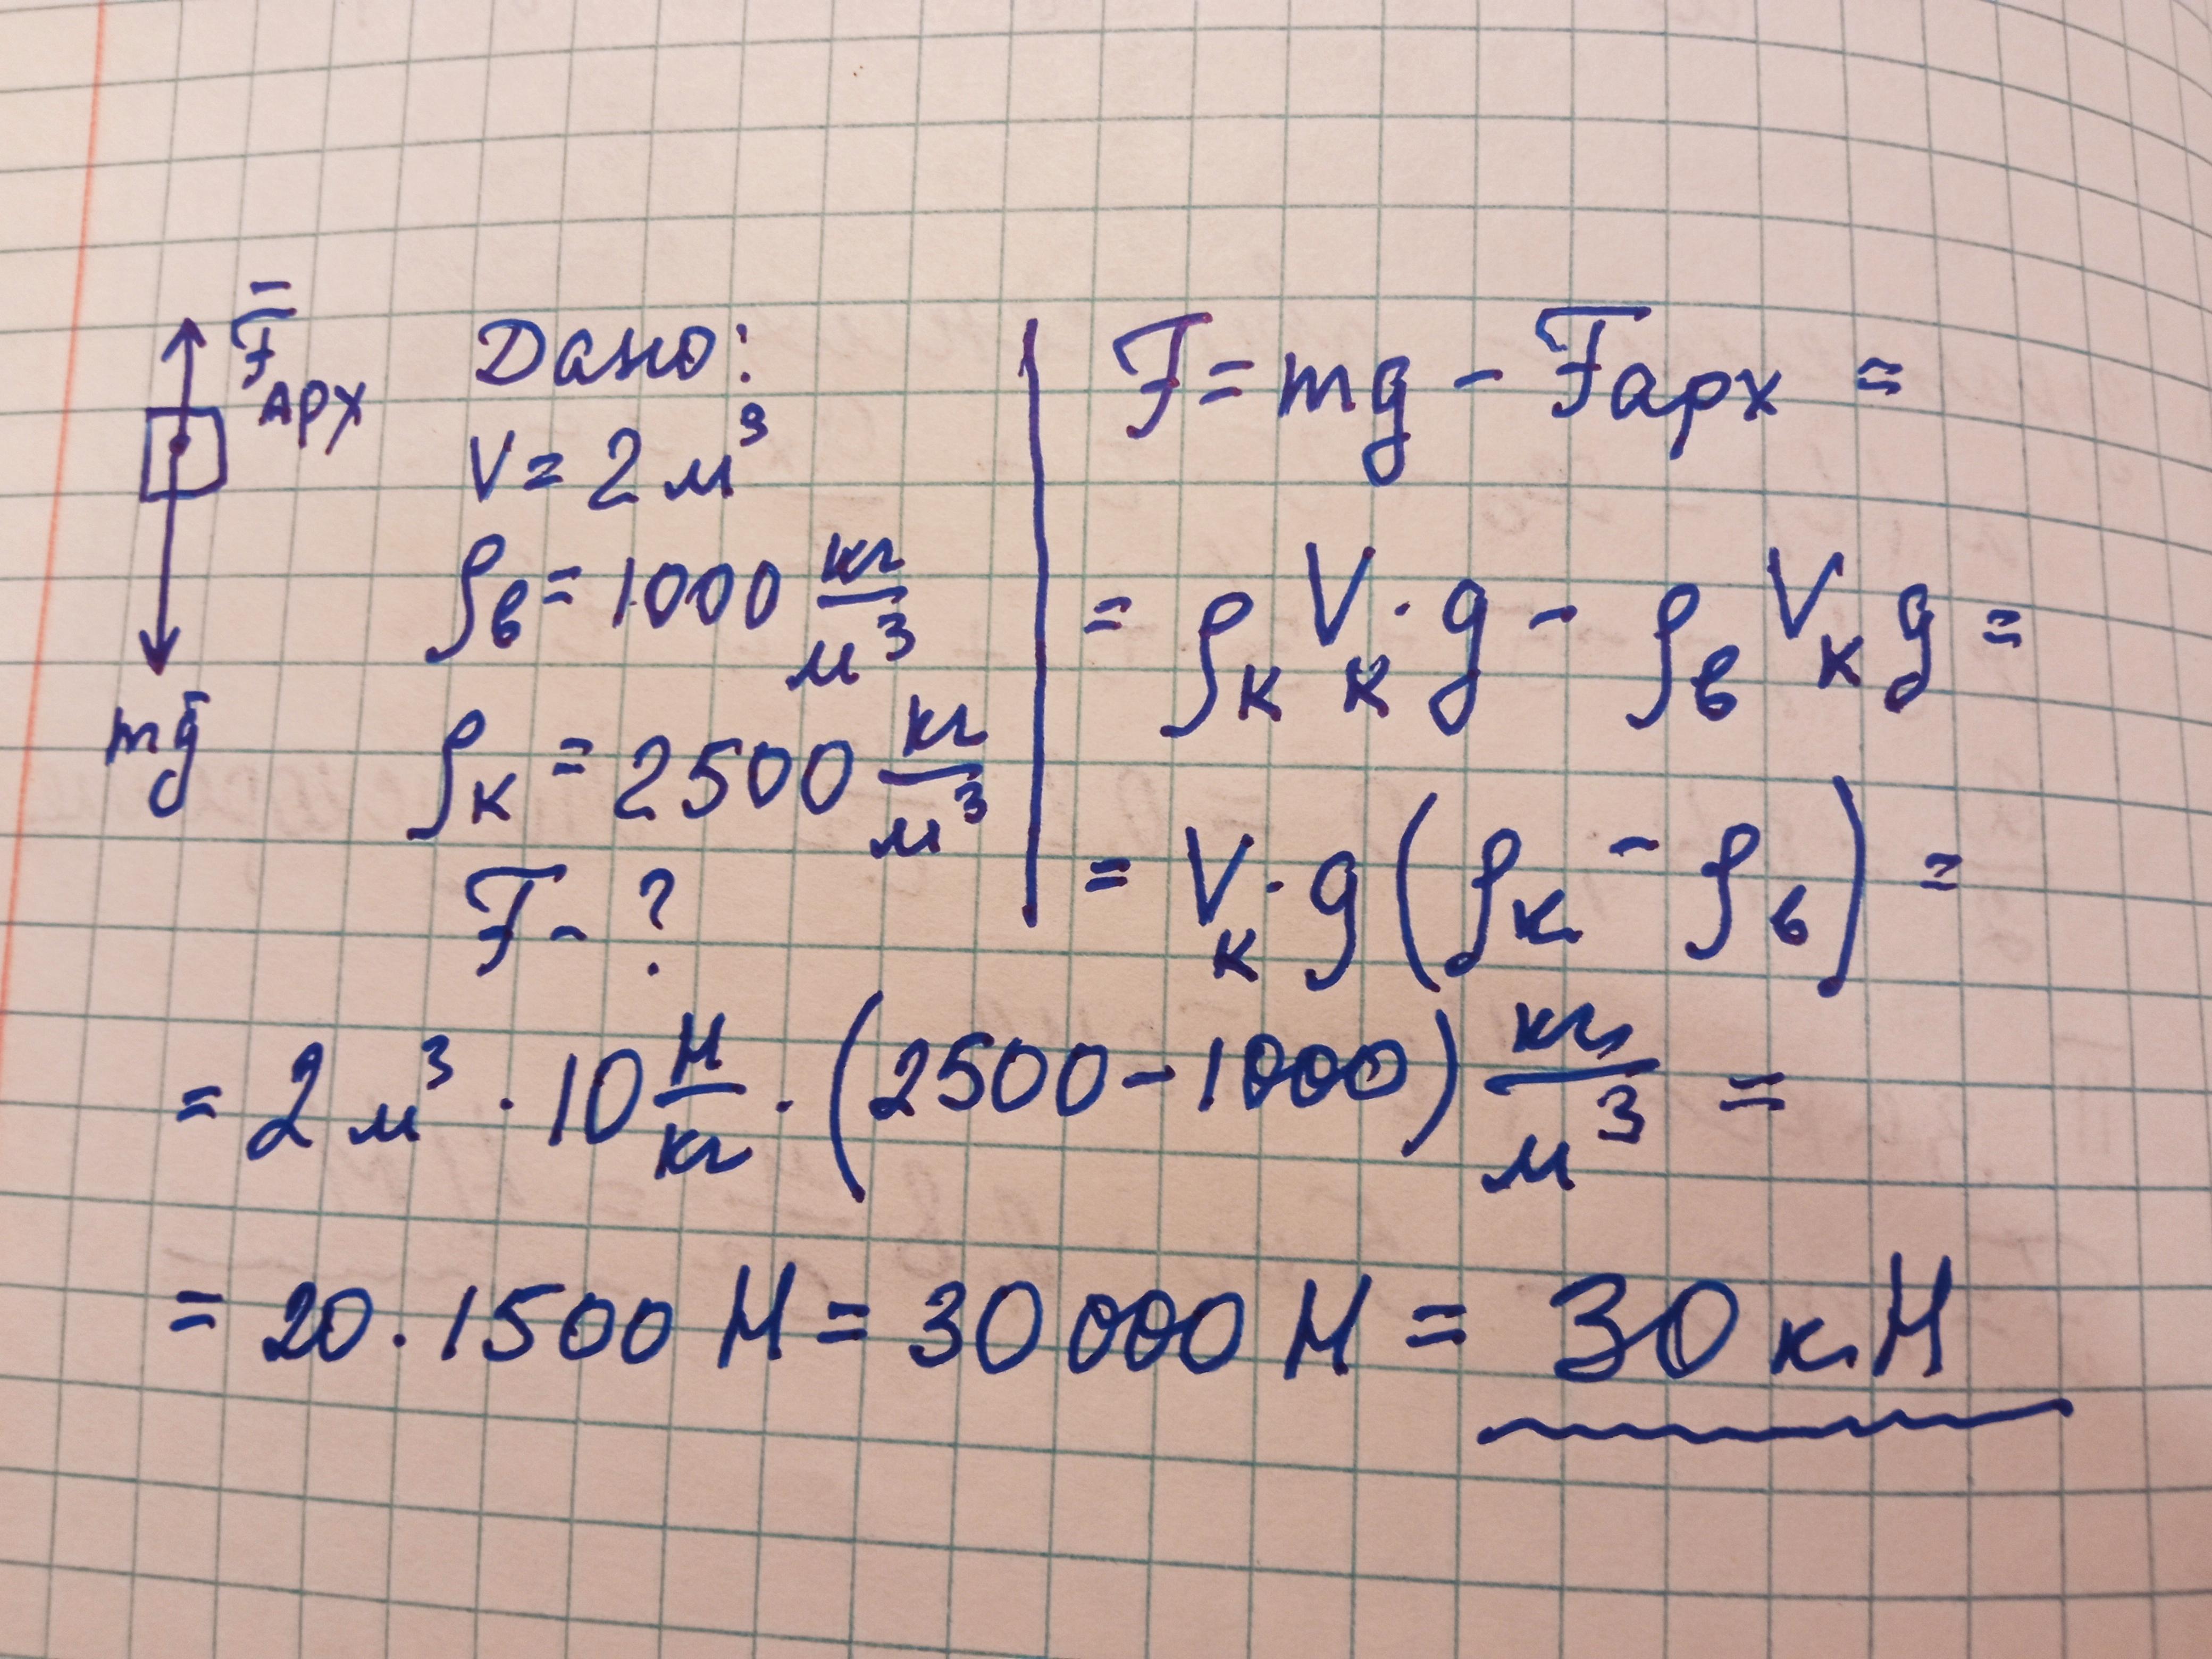 F̄арх
mḡ
Дано:
V = 2 м³
ρв = 1000 кг/м³
ρк = 2500 кг/м³
F - ?
F = mg - Fарх =
= ρк Vк · g - ρв Vк g =
= Vк · g (ρк - ρв) =
= 2 м³ · 10 Н/кг · (2500 - 1000) кг/м³ =
= 20 · 1500 Н = 30 000 Н = 30 кН